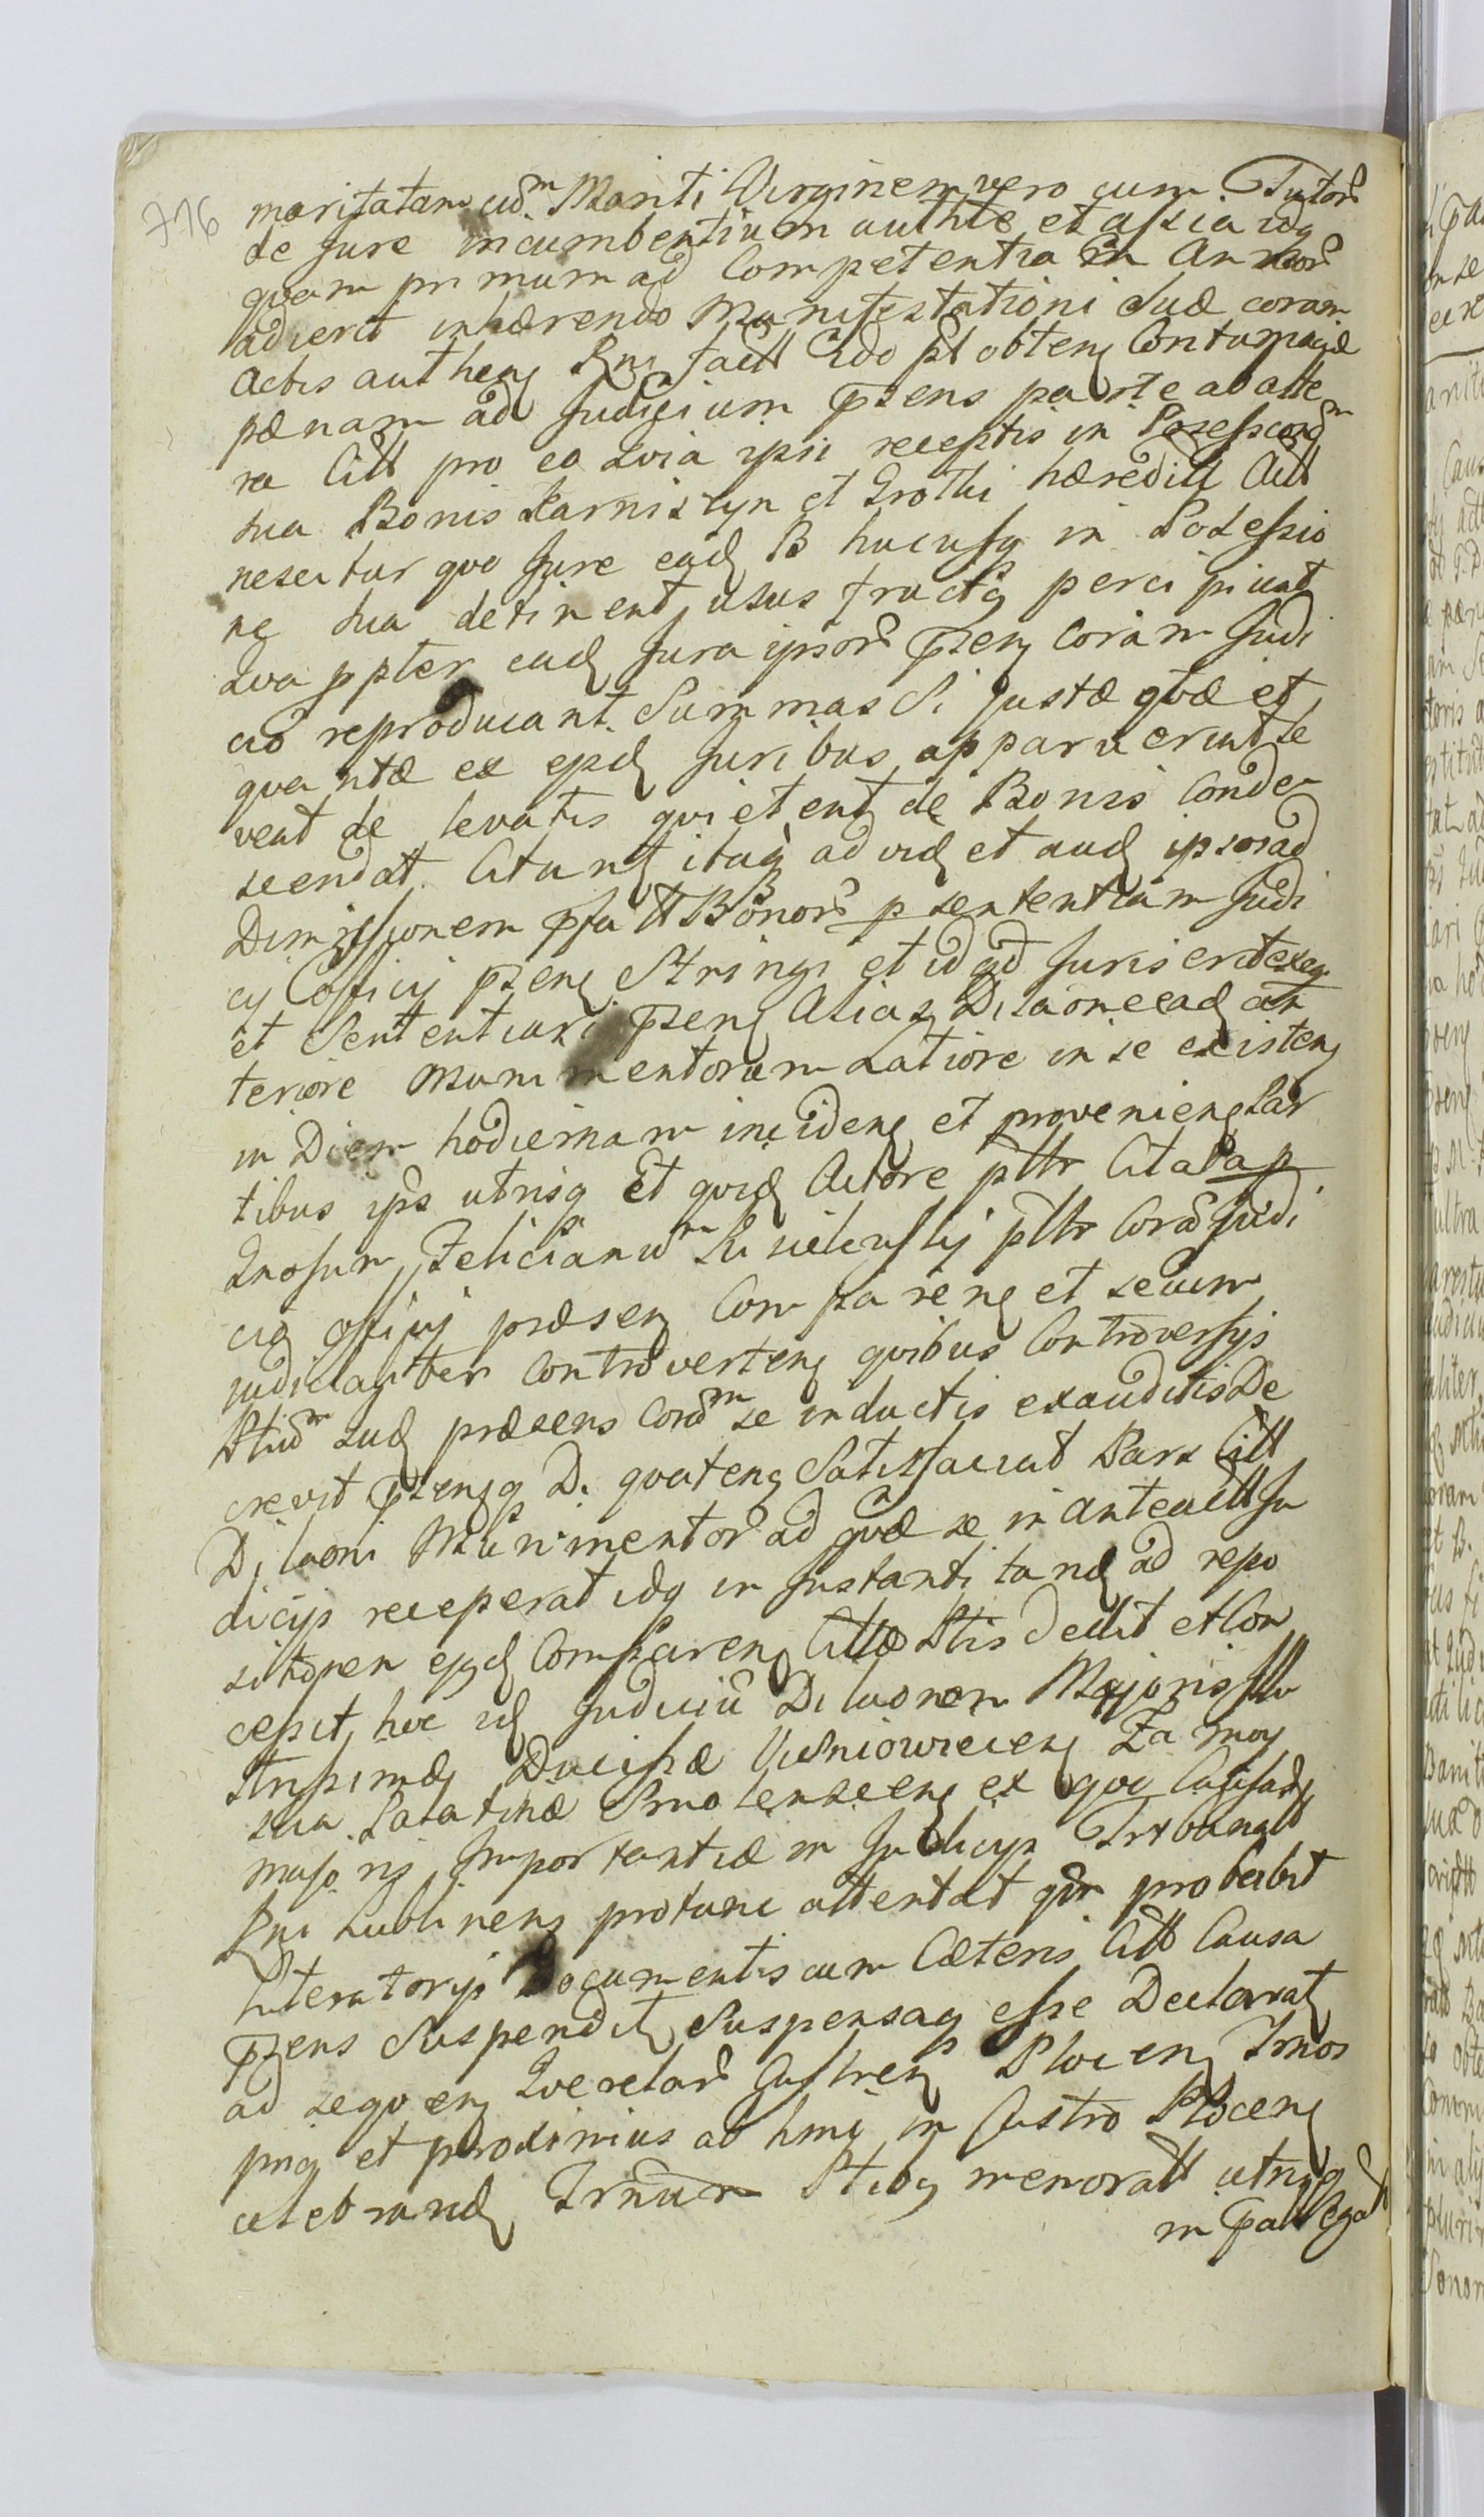 776
maritatam cum Mariti Virginem vero cum Tutor
de Jure incumbentium authte et assia idq
quam primum ad Competentia Annor
adierit inhærendo Manifestationi suæ coram
Actis authen Rni factt obten Contumaciæ
pænam ad Judicium præns parte ab alte
ra Citt pro ea Quia ipsi receptis in Possession
sua Bonis Karniszyn et Troski hæreditt Citt
nescitur quo Jure ead B hucusq in Possessio
ne sua detinent usus fructq percipiunt
Qua ppter ead Jura ipsor præn coram Judi
cio reproducant Summas si justæ quæ et
quantæ ex eisd Juribus apparuerint le
vent de levatis quietent de Bonis Conde
scendat. Citantq itaq ad vid et aud ipsos ad
Dimissionem pfatt Bonor p sententiam Judi
cy Officij præn Stringi et id qd Juris erit exeq
et Sententiari præn Alias Dilaone ead an
teriore Munimentorum Latiore in se existen
in Diem hodiernam inciden et provenien Par
tibus ips utrisq Et quid Actore pltr Citata p
Gnosum Felicianum pltr Corā Judi
cio officij præsen Comparen et secum
judicialiter controverten quibus Controversijs
Ptium Jud præsens Coram se inductis exauditis De
crevit prænsq D. quaten Satisfaciat Pars Citt
Dilaoni Munimentor ad quæ se in anteactt Ju
dicijs receperat idq in Instanti tand ad repo
sitionem ejusd Comparen Cittæ Ptis dedit et Con
cessit hoc id Judiciū Dilaonem Majoris Illu
strissimæ Ducissæ Wiśniowiecen Zamoy
scia Palatinæ Smolenscen ex quo Causas
majoris Importantiæ in Judicijs Trybunalt
Rni Lublinens protunc attentat qūr probabit
Literatorijs Documentis cum Cæteris Citt Causa
præns Suspendit Suspensaq esse Declarat
ad sequen Querelar Castren Plocen Trnos
pnq et proximius ab hinc in Castro Plocen
celebrand Trnum Ptibq memoratt utrisq